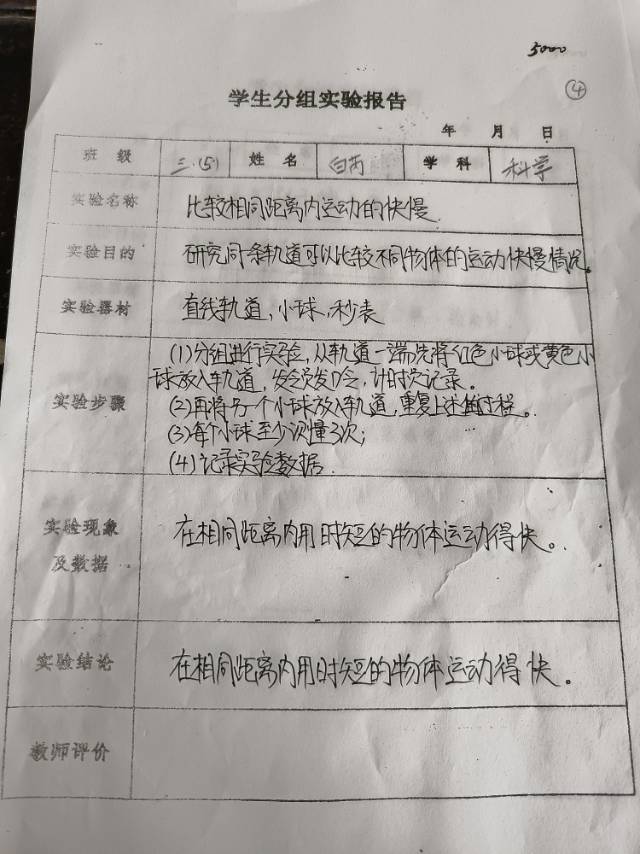 5000
④
学生分组实验报告
年 月 日
班 级 三.(5) 姓 名 白芮 学 科 科学
实验名称 比较相同距离内运动的快慢
实验目的 研究同条轨道可以比较不同物体的运动快慢情况。
实验器材 直线轨道,小球,秒表
实验步骤
(1)分组进行实验,从轨道一端先将红色小球或黄色小
球放入车轨道,发令员发口令,计时员记录。
(2)再将另一个小球放入车轨道,重复上述的过程。
(3)每个小球至少测量3次;
(4)记录实验数据
实验现象
及数据
在相同距离内用时短的物体运动得快。
实验结论 在相同距离内用时短的物体运动得快。
教师评价